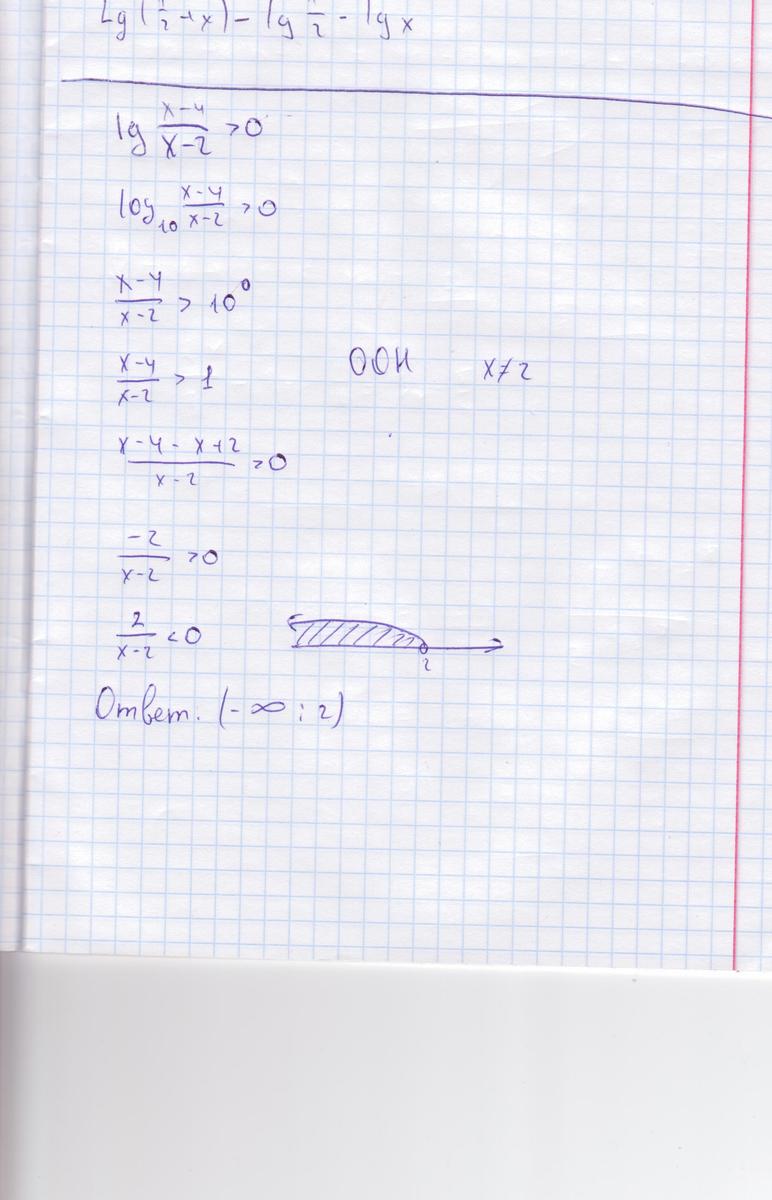 Lg(1/2 + x) - lg 1/2 - lg x
lg (x-4)/(x-2) > 0
log₁₀ (x-4)/(x-2) > 0
(x-4)/(x-2) > 10⁰
(x-4)/(x-2) > 1 ООН x≠2
(x-4-x+2)/(x-2) > 0
-2/(x-2) > 0
2/(x-2) < 0
2
Ответ. (-∞; 2)